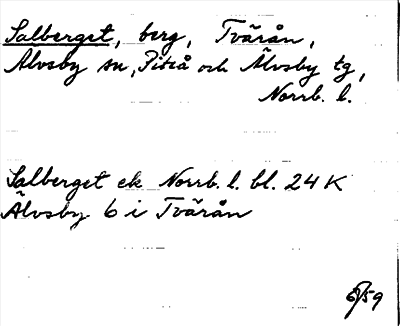 Salberget, berg, Tvärån,
Älvsby sn, Piteå och Älvsby tg,
Norrb. l.
Salberget ek Norrb. l. bl. 24 K
Älvsby 6 i Tvärån
6/59